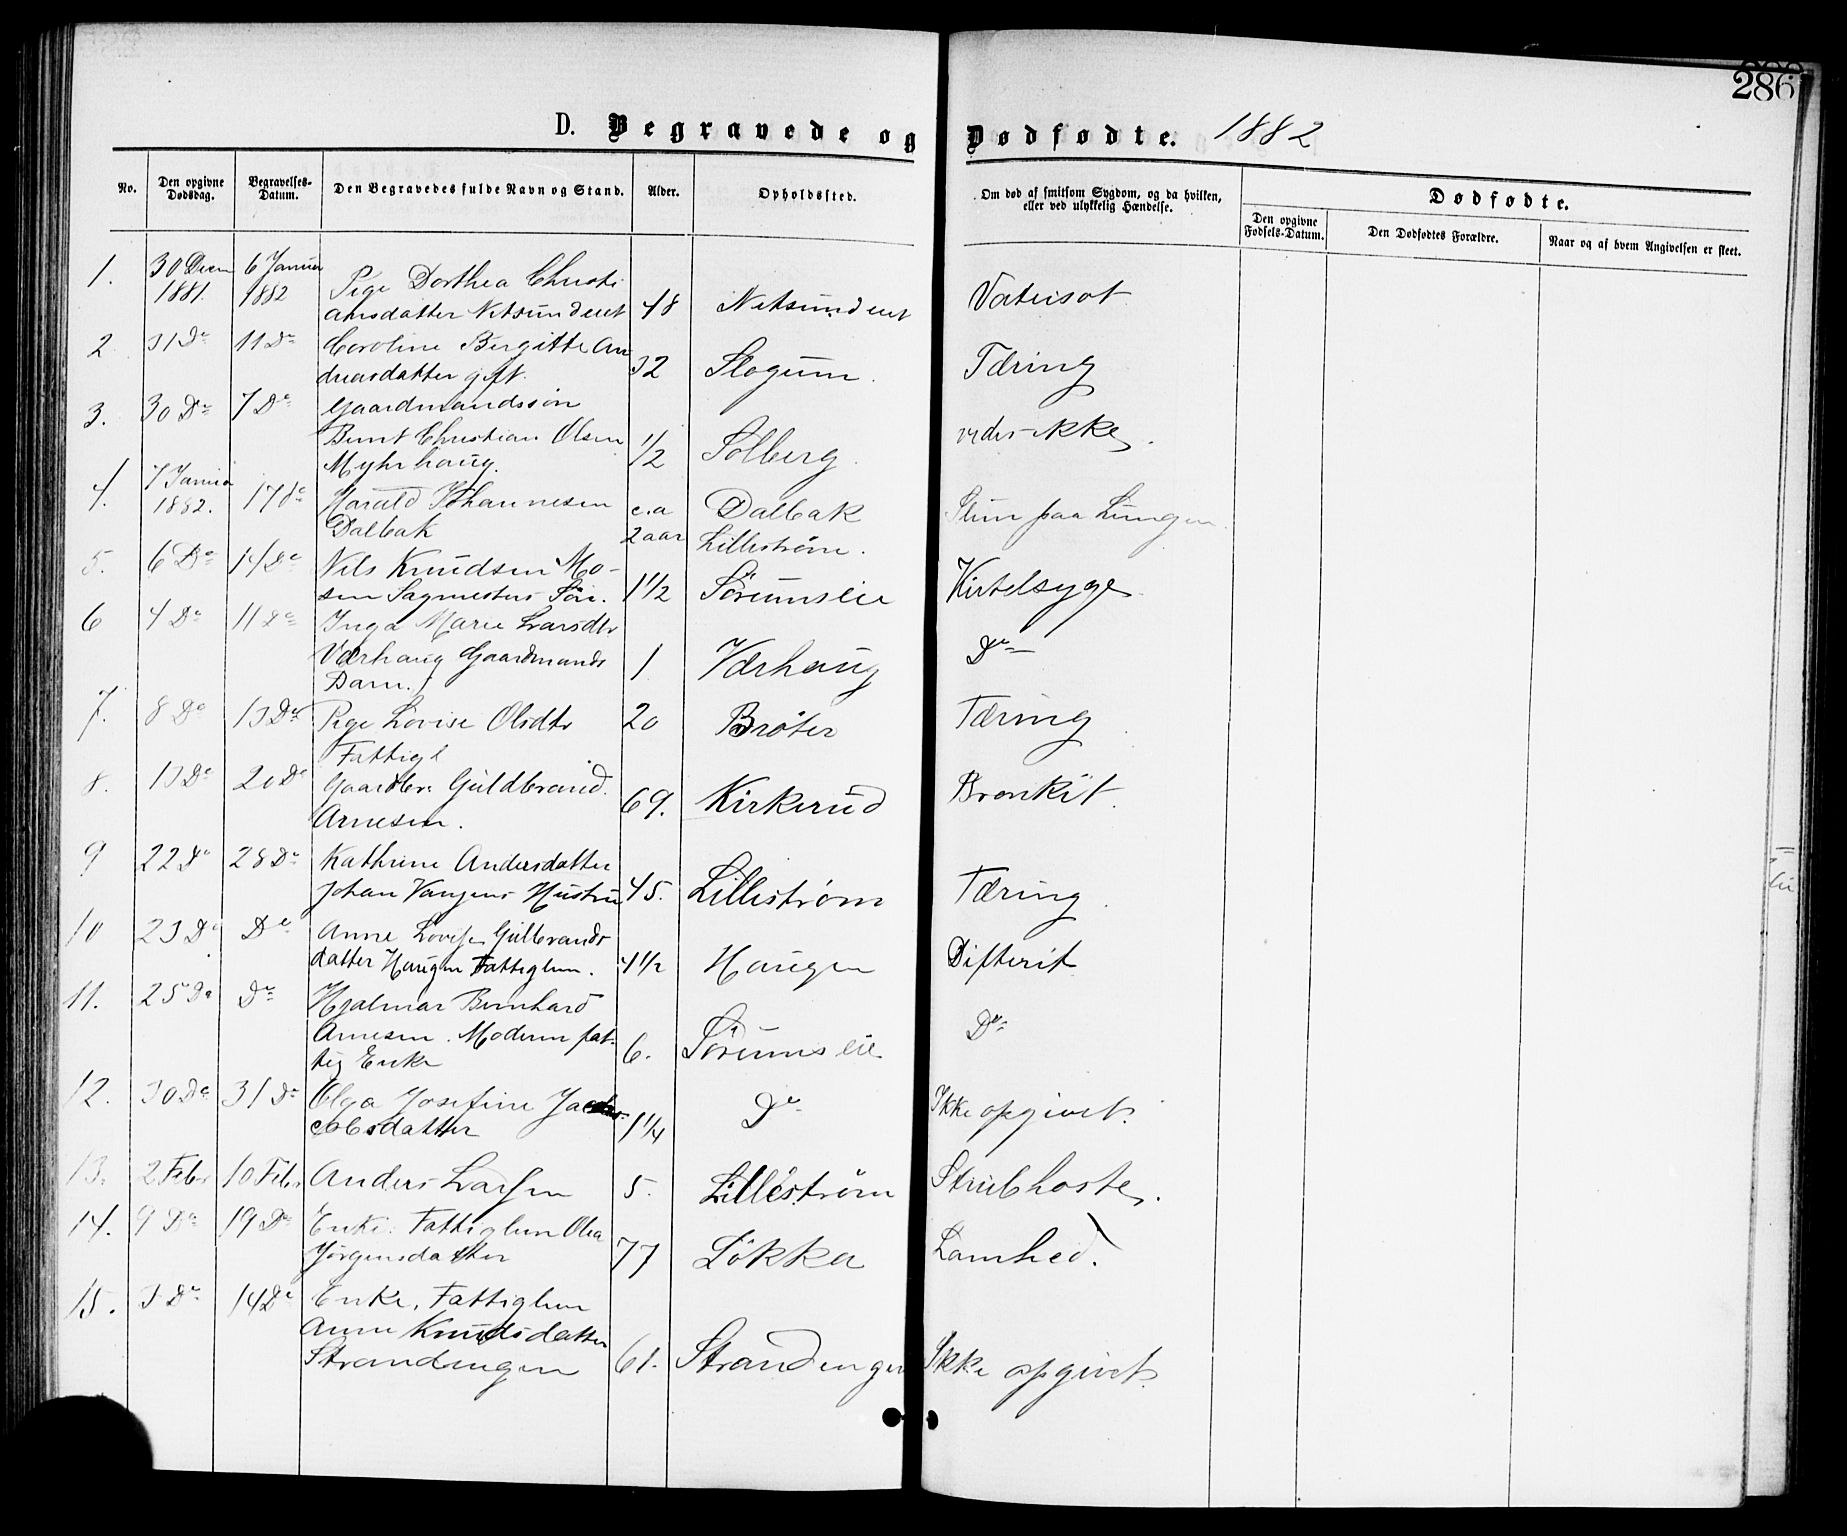 286
D. Begravede og Dødfødte. 1882
No. Den opgivne Dødsdag. Begravelses-Datum. Den Begravedes fulde Navn og Stand. Alder. Opholdssted. Om død af smitsom Sygdom, og da hvilken, eller ved ulykkelig Hændelse. Dødfødte.
Den opgivne Fødsels-Datum. Den Dødfødtes Forældre. Naar og af hvem Angivelsen er skeet.
1. 30 Decm 6 Januar Pige Dorthea Christi
1881. 1882 ansdatter Nitsunderet 48 Nitsunderet Vatersot
2 31 Do 11 Do Caroline Birgitte An
dreasdatter gift. 32 Slogum. Tæring
3. 30 Do 7 Do Gaardmandssøn
Bernt Christian Olsen 1/2 Solberg vides ikke.
Myhrhaug.
4. 7 Januar Harald Johannesen c.a Dalbak Sliim paa Lungen
1882. 17 Do Dalbak 2 aar Lillestrøm.
5. 6 Do 14 Do Nils Knudsen Mo-
sen Sagmesters Søn. 1 1/2 Sørumseie Kirtelsyge
6 4 Do 11 Do Inga Marie Larsdtr
Værhaug Gaardmands 1 Værhaug Do
Barn.
7. 8 Do 13 Do Pige Lovise Olsdtr 20 Brøter Tæring
Fattigl
8. 13 Do 20 Do Gaardbr. Guldbrand. 69. Kirkerud Bronkit.
Arnesen.
9 22 Do 28 Do Kathrine Andersdatter
Johan Vangens Hustru 45. Lillestrøm Tæring
10 23 Do Do Anne Lovise Gulbrands
datter Haugen Fattiglem. 4 1/2 Haugen Difterit
11. 25 Do Do Hjalmar Bernhard
Arnesen. Moderen fat- 6. Sørumseie Do
tig Enke
12. 30 Do 31 Do Olga Josefine Ja
cobsdatter 1 1/4 Do Ikke opgivet.
13. 2 Febr 10 Febr Anders Larsen 5. Lillestrøm Strubehoste.
14. 9 Do 19 Do Enke. Fattiglem Olea
Jørgensdatter 77 Løkka Lamhed.
15. 3 Do 14 Do Enke, Fattiglem
Anne Knudsdatter
Strandengen 61. Strandengen Ikke opgivet.